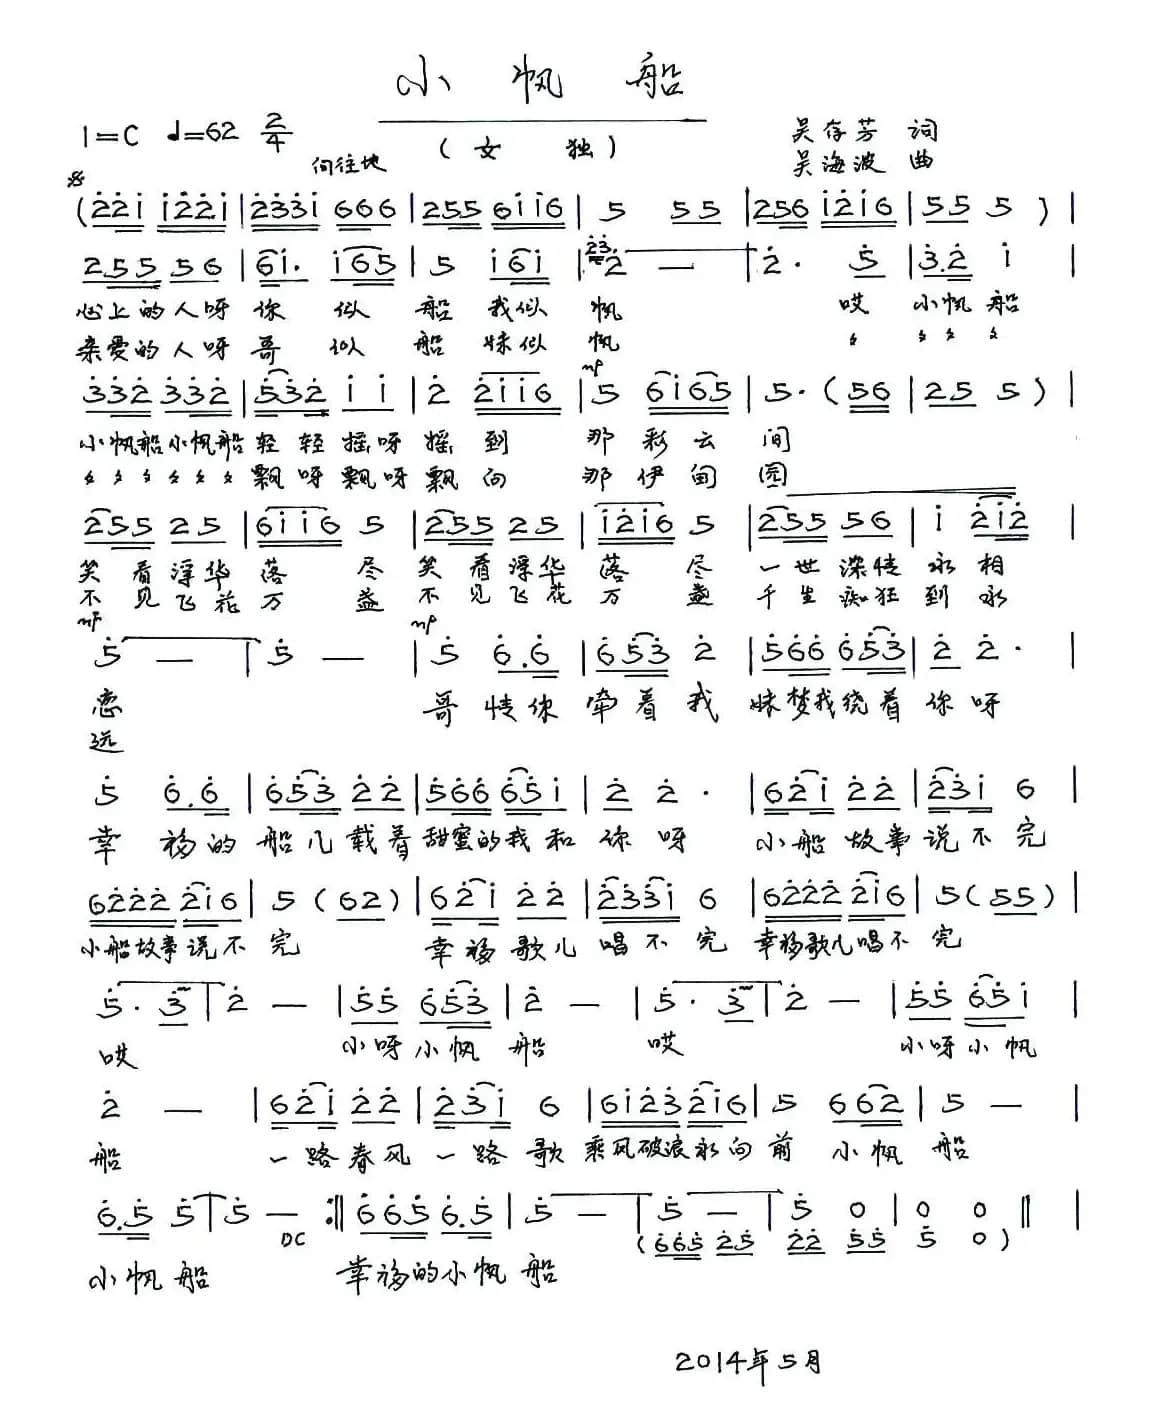 小帆船
1=C ♩=62 2/4 (女 独) 吴存芳 词
向往地 吴海波 曲
(2̇2̇1̇ 1̇2̇2̇1̇ | 2̇3̇3̇1̇ 666 | 255 61̇1̇6 | 5 55 | 256 1̇2̇1̇6 | 55 5 ) |
2.55 56 | 61̇. 1̇65 | 5 1̇61̇ | 2̇3̇ 2̇ — | 2̇. 5̇ | 3̇.2̇ 1̇ |
心上的人呀你 似 船 我似 帆 哎 小帆船
亲爱的人呀哥 似 船 妹似 帆 〻 〻〻〻
mp
3̇3̇2̇ 3̇3̇2̇ | 5̇3̇2̇ 1̇ 1̇ | 2̇ 2̇1̇1̇6 | 5 61̇65 | 5.(56 | 25 5 ) |
小帆船小帆船轻 轻摇呀摇 到 那 彩 云 间
〻〻〻〻〻〻飘呀飘呀飘 向 那 伊 甸 园
255 25 | 61̇1̇6 5 | 255 25 | 1̇2̇1̇6 5 | 255 56 | 1̇ 2̇1̇2̇ |
笑 看浮华 落 尽 笑 看浮华 落 尽 一 世 深情 永 相
不 见飞花 万 盏 不 见飞花 万 盏 千 生 痴狂 到 永
mf mp
5̇ — | 5̇ — | 5̇ 6̇.6̇ | 6̇5̇3̇ 2̇ | 5̇6̇6̇ 6̇5̇3̇ | 2̇ 2̇. |
恋 哥 情你 牵着 我 妹梦我绕着 你 呀
远
5̇ 6̇.6̇ | 6̇5̇3̇ 2̇2̇ | 5̇6̇6̇ 6̇5̇1̇ | 2̇ 2̇. | 62̇1̇ 2̇2̇ | 2̇3̇1̇ 6 |
幸 福的 船儿载着 甜蜜的我和 你 呀 小船 故事 说不 完
62̇2̇2̇ 2̇1̇6 | 5 (62) | 62̇1̇ 2̇2̇ | 2̇3̇3̇1̇ 6 | 62̇2̇2̇ 2̇1̇6 | 5(55) |
小船故事说不 完 幸福 歌儿 唱 不 完 幸福歌儿唱不 完
5̇. 3̇ | 2̇ — | 5̇5̇ 6̇5̇3̇ | 2̇ — | 5̇. 3̇ | 2̇ — | 5̇5̇ 6̇5̇1̇ |
哎 小呀小帆 船 哎 小呀小帆
2̇ — | 62̇1̇ 2̇2̇ | 2̇3̇1̇ 6 | 61̇2̇3̇ 2̇1̇6 | 5 662 | 5 — |
船 一路春风 一路 歌 乘风破浪永向 前 小帆 船
6̇.5̇ 5̇ | 5̇ — :‖ 6̇6̇5̇ 6̇.5̇ | 5̇ — | 5̇ — | 5̇ 0 | 0 0 ‖ |
DC (6̇6̇5̇ 2̇5̇ 2̇2̇ 5̇5̇ 5̇ 0 )
小帆 船 幸福的小帆 船
2014年5月